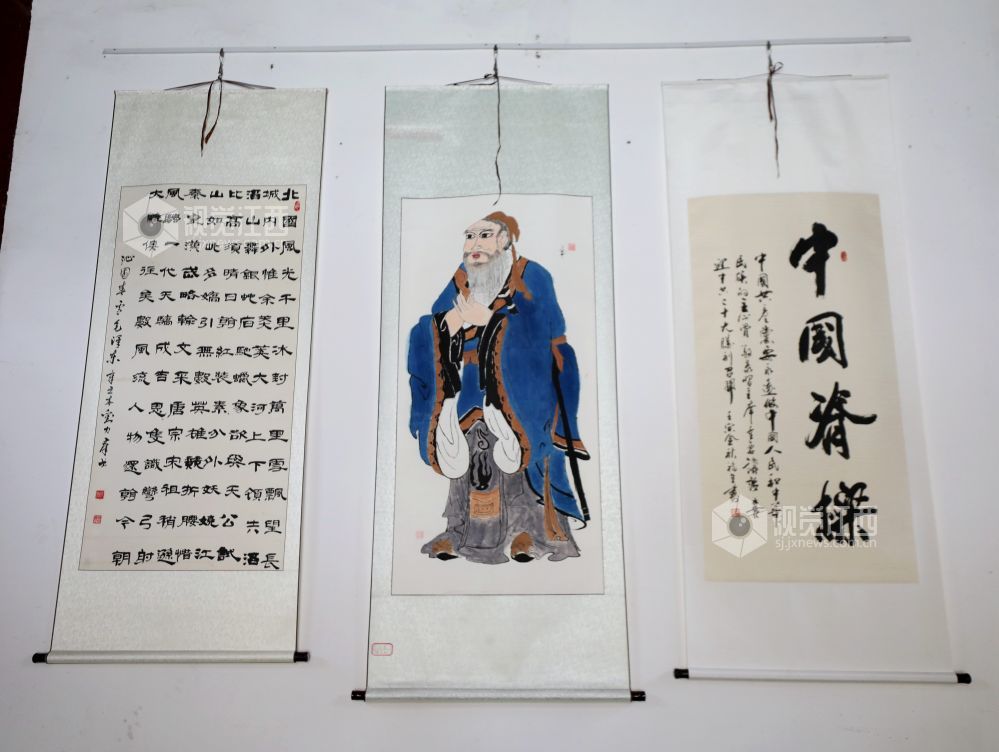 北國風光千里冰封萬里雪飄望長
城內外惟余莽莽大河上下頓失滔
滔山舞銀蛇原馳蠟象欲與天公試
比高須晴日看紅裝素分外妖嬈江
山如此多嬌引無數英雄競折腰惜
秦皇漢武略輸文采唐宗宋祖稍遜
風騷一代天驕成吉思隻識彎弓射
大雕俱往矣數風流人物還看今朝
沁園春雪毛澤東
中國脊樑
中國共產黨要永遠做中國人民和中華
民族的主心骨
迎中共二十大勝利召開壬寅金秋
视觉江西
视觉江西
视觉江西
sj.jxnews.com.cn